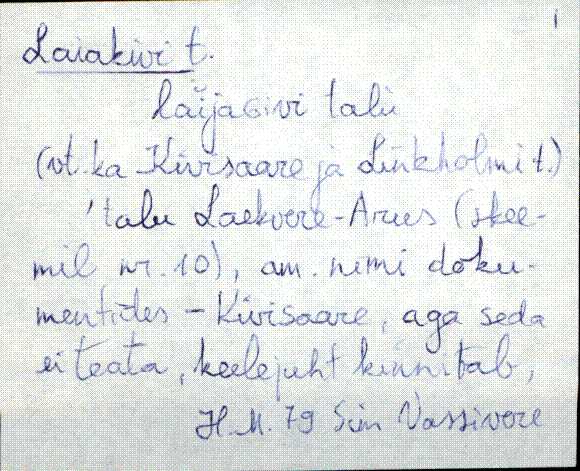 1
Laiakivi t.
laijaGivi talu
(vt. ka Kivisaare ja Linkholmi t.)
'talu Laekvere-Arus (skee-
mil nr. 10), am. nimi doku-
mentides - Kivisaare, aga seda
ei teata, keelejuht kinnitab,
H. M. 79 Sim Vassivere